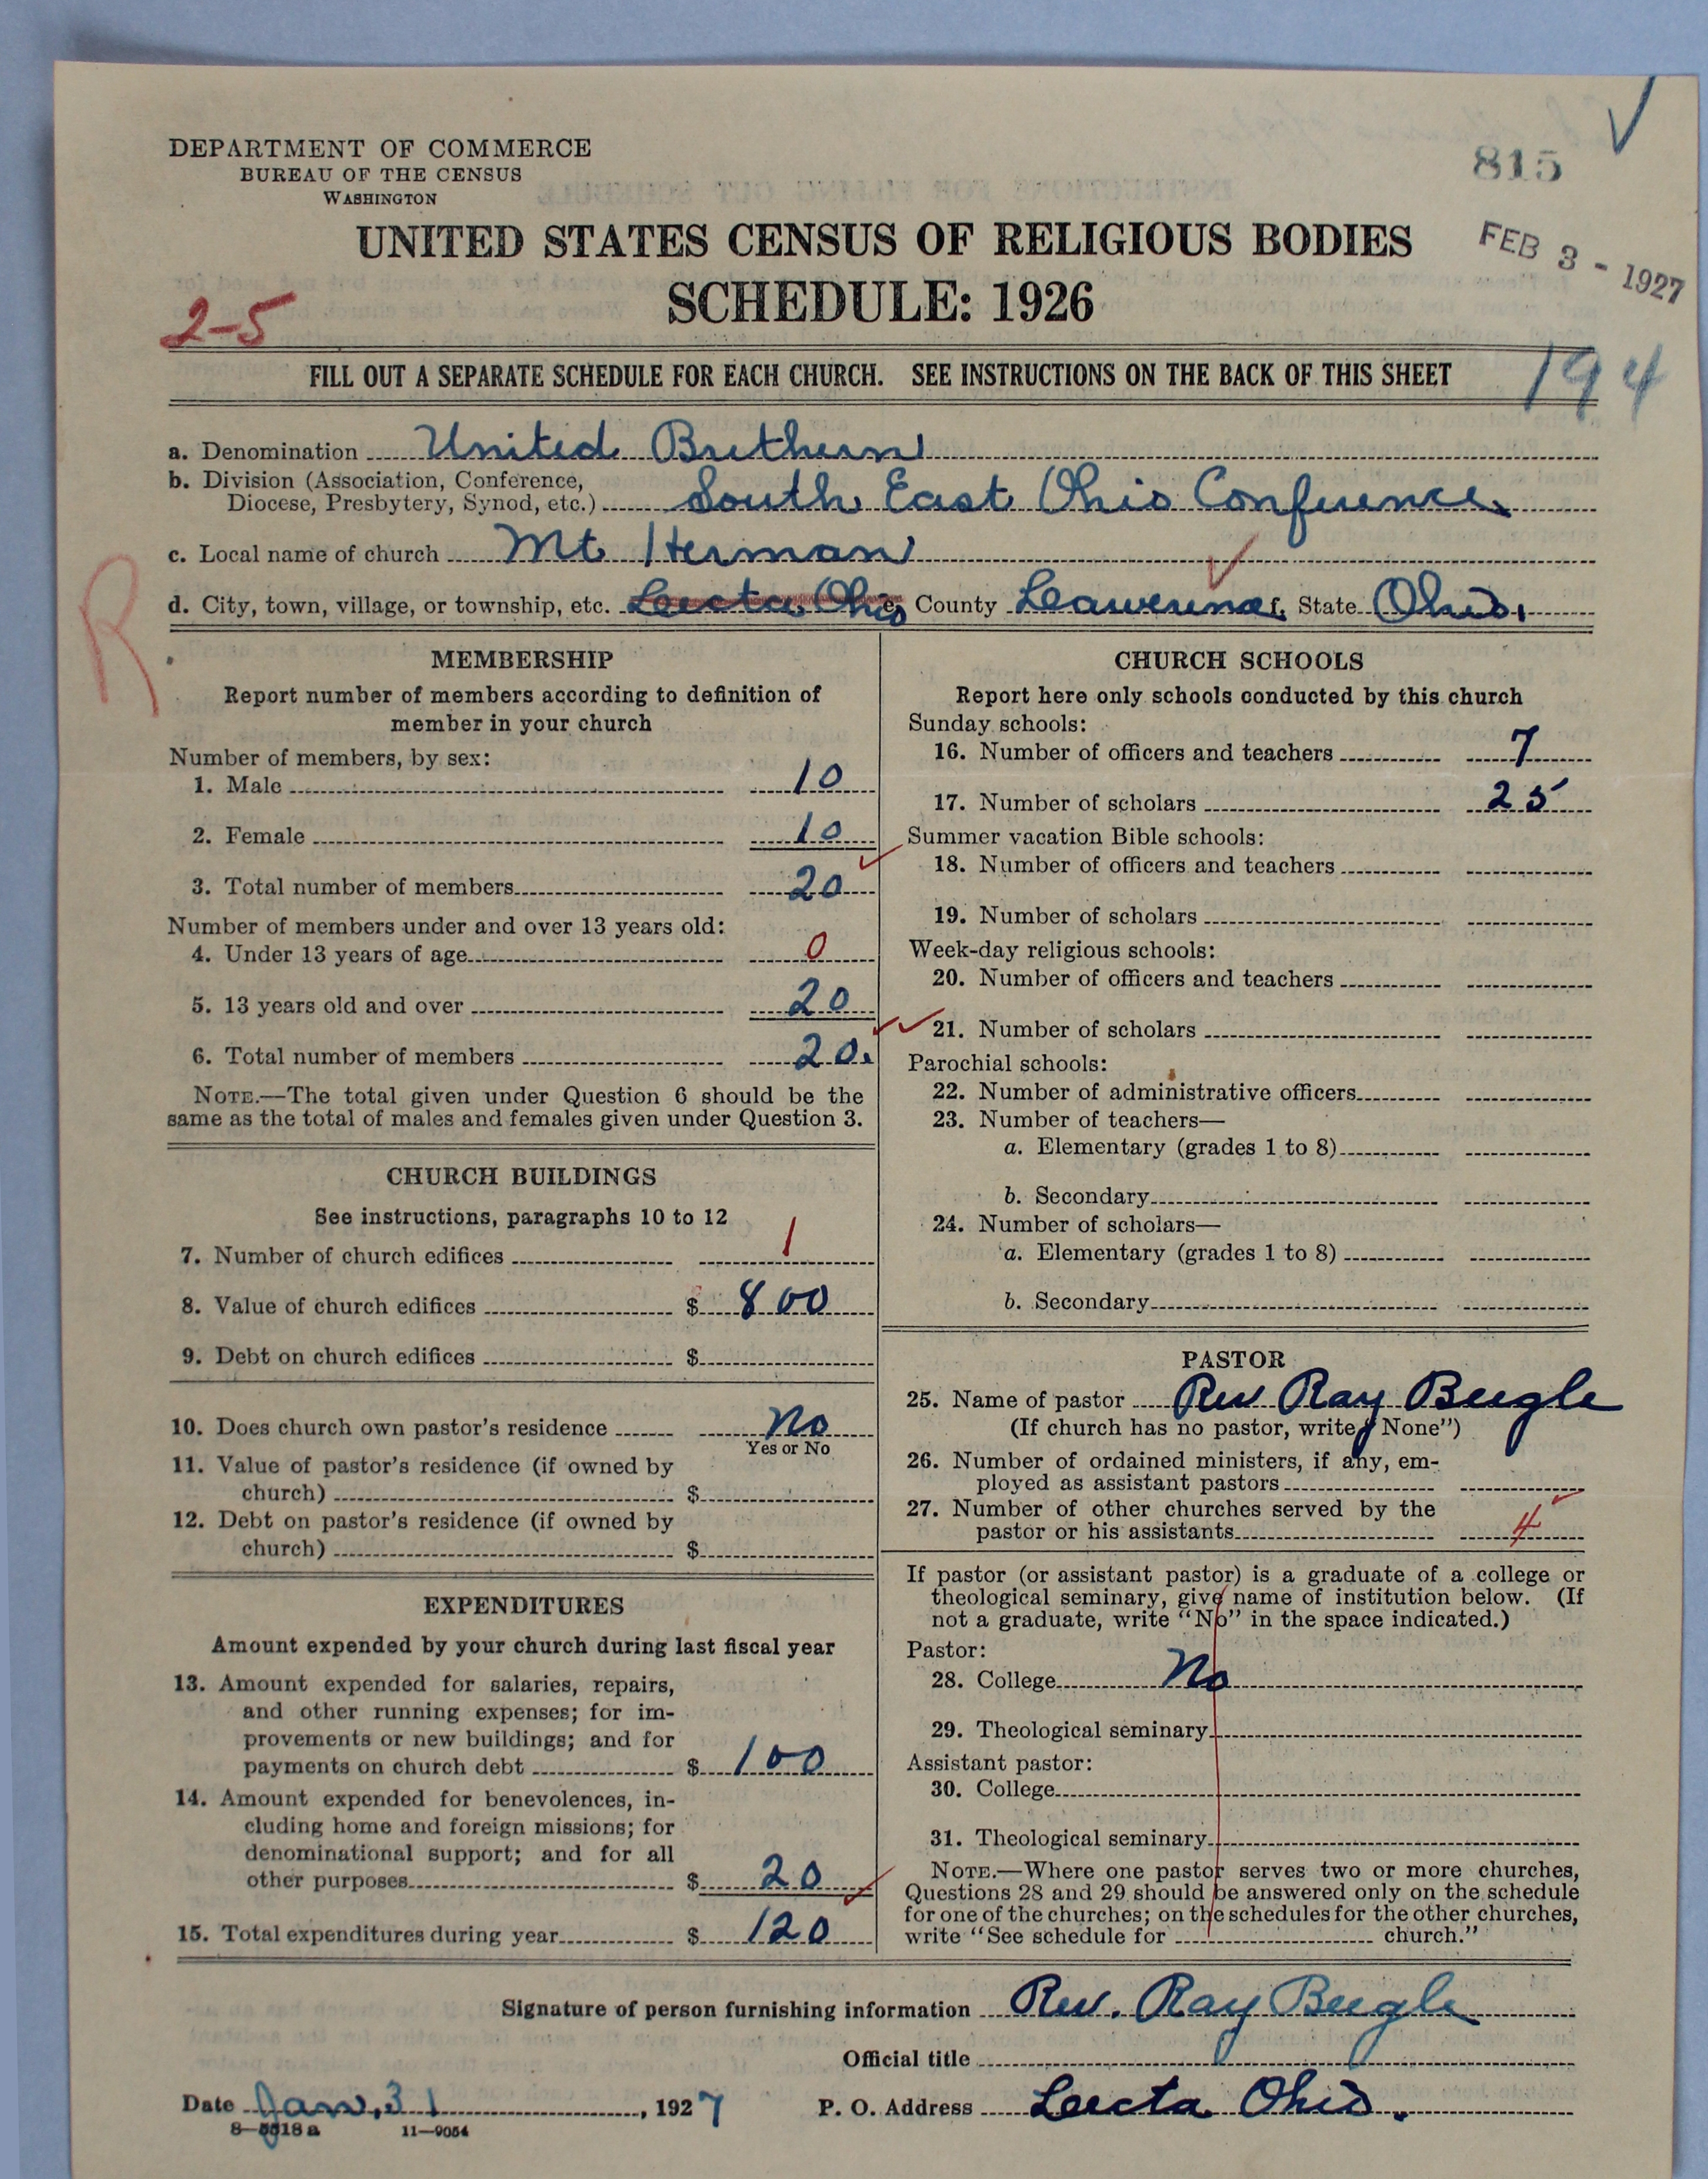 DEPARTMENT OF COMMERCE
BUREAU OF THE CENSUS
WASHINGTON
815
UNITED STATES CENSUS OF RELIGIOUS BODIES
FEB 3 - 1927
SCHEDULE: 1926
2-5
FILL OUT A SEPARATE SCHEDULE FOR EACH CHURCH. SEE INSTRUCTIONS ON THE BACK OF THIS SHEET
194
a. Denomination United Brethern
b. Division (Association, Conference,
Diocese, Presbytery, Synod, etc.) South East Ohio Conference
c. Local name of church Mt Herman
d. City, town, village, or township, etc. Leecta, Ohio County State Ohio.
R
MEMBERSHIP
Report number of members according to definition of
member in your church
Number of members, by sex:
1. Male 10
2. Female 10
3. Total number of members 20
Number of members under and over 13 years old:
4. Under 13 years of age 0
5. 13 years old and over 20
6. Total number of members 20.
NOTE.—The total given under Question 6 should be the
same as the total of males and females given under Question 3.
CHURCH BUILDINGS
See instructions, paragraphs 10 to 12
7. Number of church edifices 1
8. Value of church edifices $ 800
9. Debt on church edifices $
10. Does church own pastor's residence No
Yes or No
11. Value of pastor's residence (if owned by
church) $
12. Debt on pastor's residence (if owned by
church) $
EXPENDITURES
Amount expended by your church during last fiscal year
13. Amount expended for salaries, repairs,
and other running expenses; for im-
provements or new buildings; and for
payments on church debt $ 100
14. Amount expended for benevolences, in-
cluding home and foreign missions; for
denominational support; and for all
other purposes $ 20
15. Total expenditures during year $ 120
CHURCH SCHOOLS
Report here only schools conducted by this church
Sunday schools:
16. Number of officers and teachers 7
17. Number of scholars 25
Summer vacation Bible schools:
18. Number of officers and teachers
19. Number of scholars
Week-day religious schools:
20. Number of officers and teachers
21. Number of scholars
Parochial schools:
22. Number of administrative officers
23. Number of teachers—
a. Elementary (grades 1 to 8)
b. Secondary
24. Number of scholars—
a. Elementary (grades 1 to 8)
b. Secondary
PASTOR
25. Name of pastor Rev Ray Beegle
(If church has no pastor, write "None")
26. Number of ordained ministers, if any, em-
ployed as assistant pastors
27. Number of other churches served by the
pastor or his assistants 4
If pastor (or assistant pastor) is a graduate of a college or
theological seminary, give name of institution below. (If
not a graduate, write "No" in the space indicated.)
Pastor:
28. College No
29. Theological seminary
Assistant pastor:
30. College
31. Theological seminary
NOTE.—Where one pastor serves two or more churches,
Questions 28 and 29 should be answered only on the schedule
for one of the churches; on the schedules for the other churches,
write "See schedule for church."
Signature of person furnishing information Rev. Ray Beegle
Official title
Date Jan, 31, 1927 P. O. Address Leecta Ohio.
8-5518a 11-9054